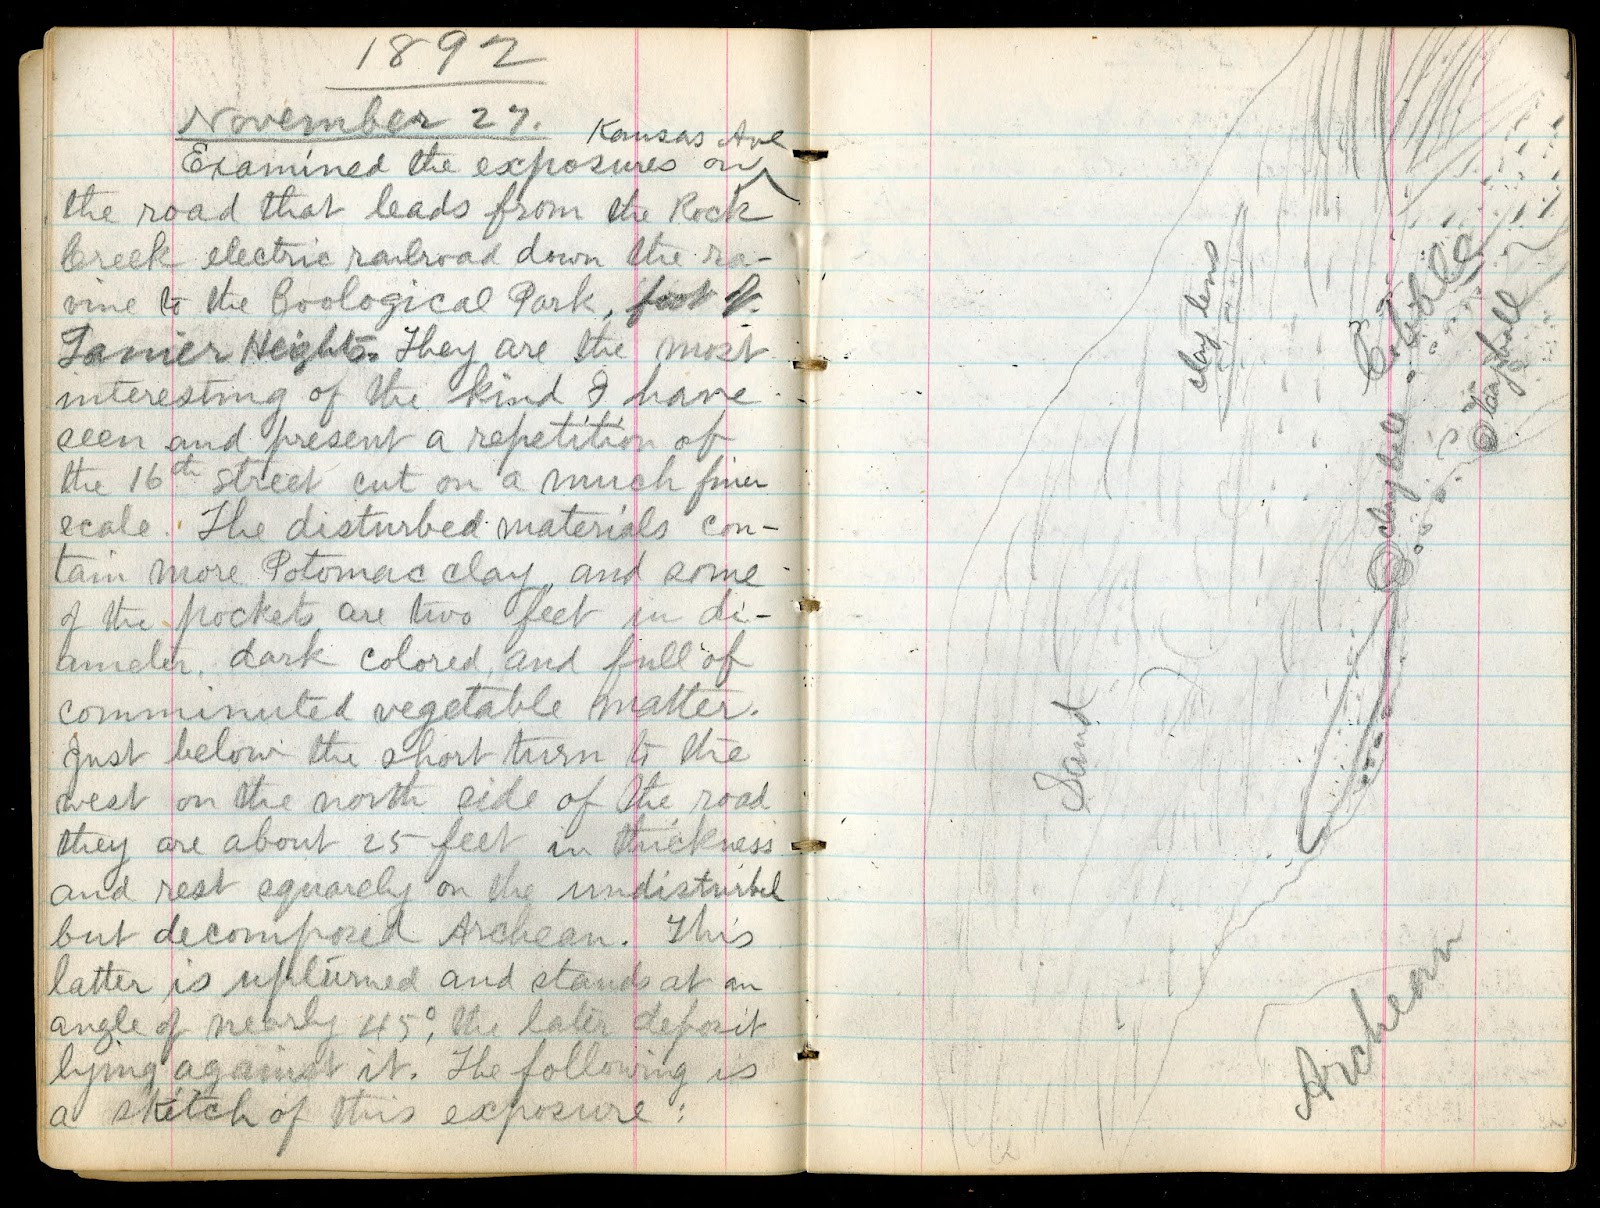 1892
November 27.
Kansas Ave
Examined the exposures on
the road that leads from the Rock
Creek electric railroad down the ra-
vine to the Zoological Park, foot of
Lanier Heights. They are the most
interesting of the kind I have
seen and present a repetition of
the 16th street cut on a much finer
scale. The disturbed materials con-
tain more Potomac clay, and some
of the pockets are two feet in di-
ameter, dark colored, and full of
comminuted vegetable matter.
Just below the short turn to the
west on the north side of the road
they are about 25 feet in thickness
and rest squarely on the undisturbed
but decomposed Archean. This
latter is upturned and stands at an
angle of nearly 45°, the later deposit
lying against it. The following is
a sketch of this exposure:
clay lens
Cobble
clay ball
clay ball
Sand
Archean